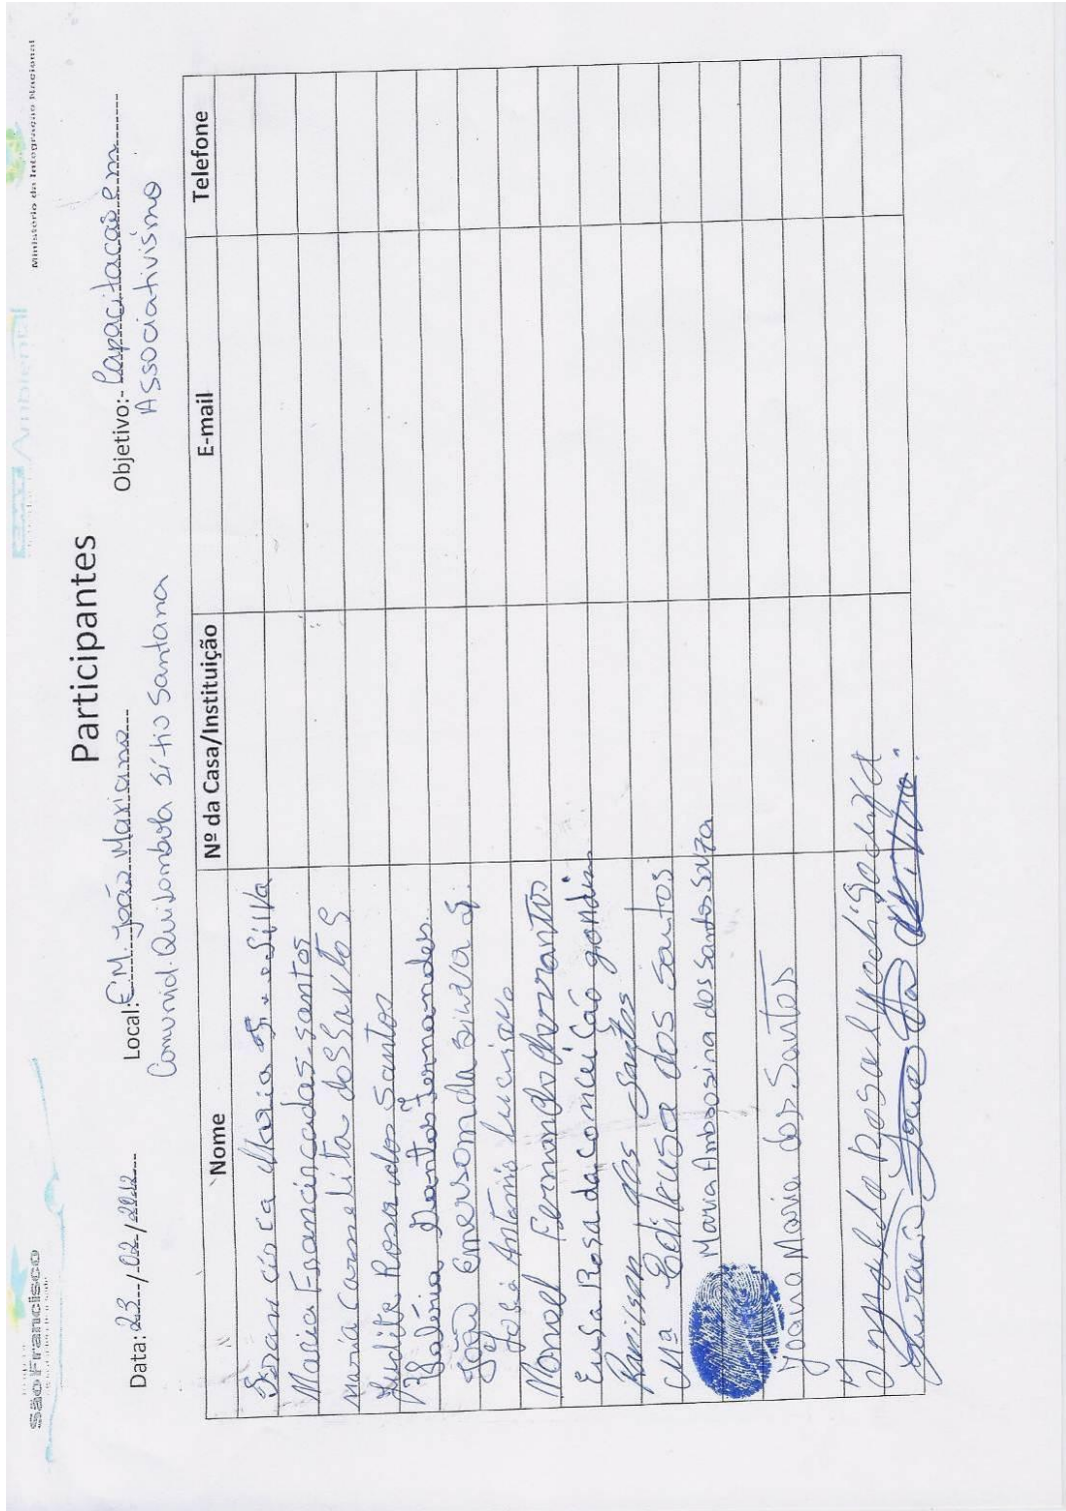 São Francisco
Ambiental
Ministério da Integração Nacional
Participantes
Data: 23/02/2012 Local: E.M. João Mariano Objetivo:- Capacitacaõ em
Comunid. Quilombola Sítio Santana Associativismo
Nome Nº da Casa/Instituição E-mail Telefone
Francisca Maria S. e Silva
Maria Francisca dos santos
Maria carmelita dos Santos
Judite Rosa dos Santos
Valéria Santos Fernandes
João Emerson da Silva S.
José Antonio Luciano
Manoel Fernando
Eusa Rosa da Conceição gondim
Ranilson dos Santos
Mª Edileusa dos santos
Maria Ambrosina dos Santos Souza
Joana Maria dos Santos
Rosa